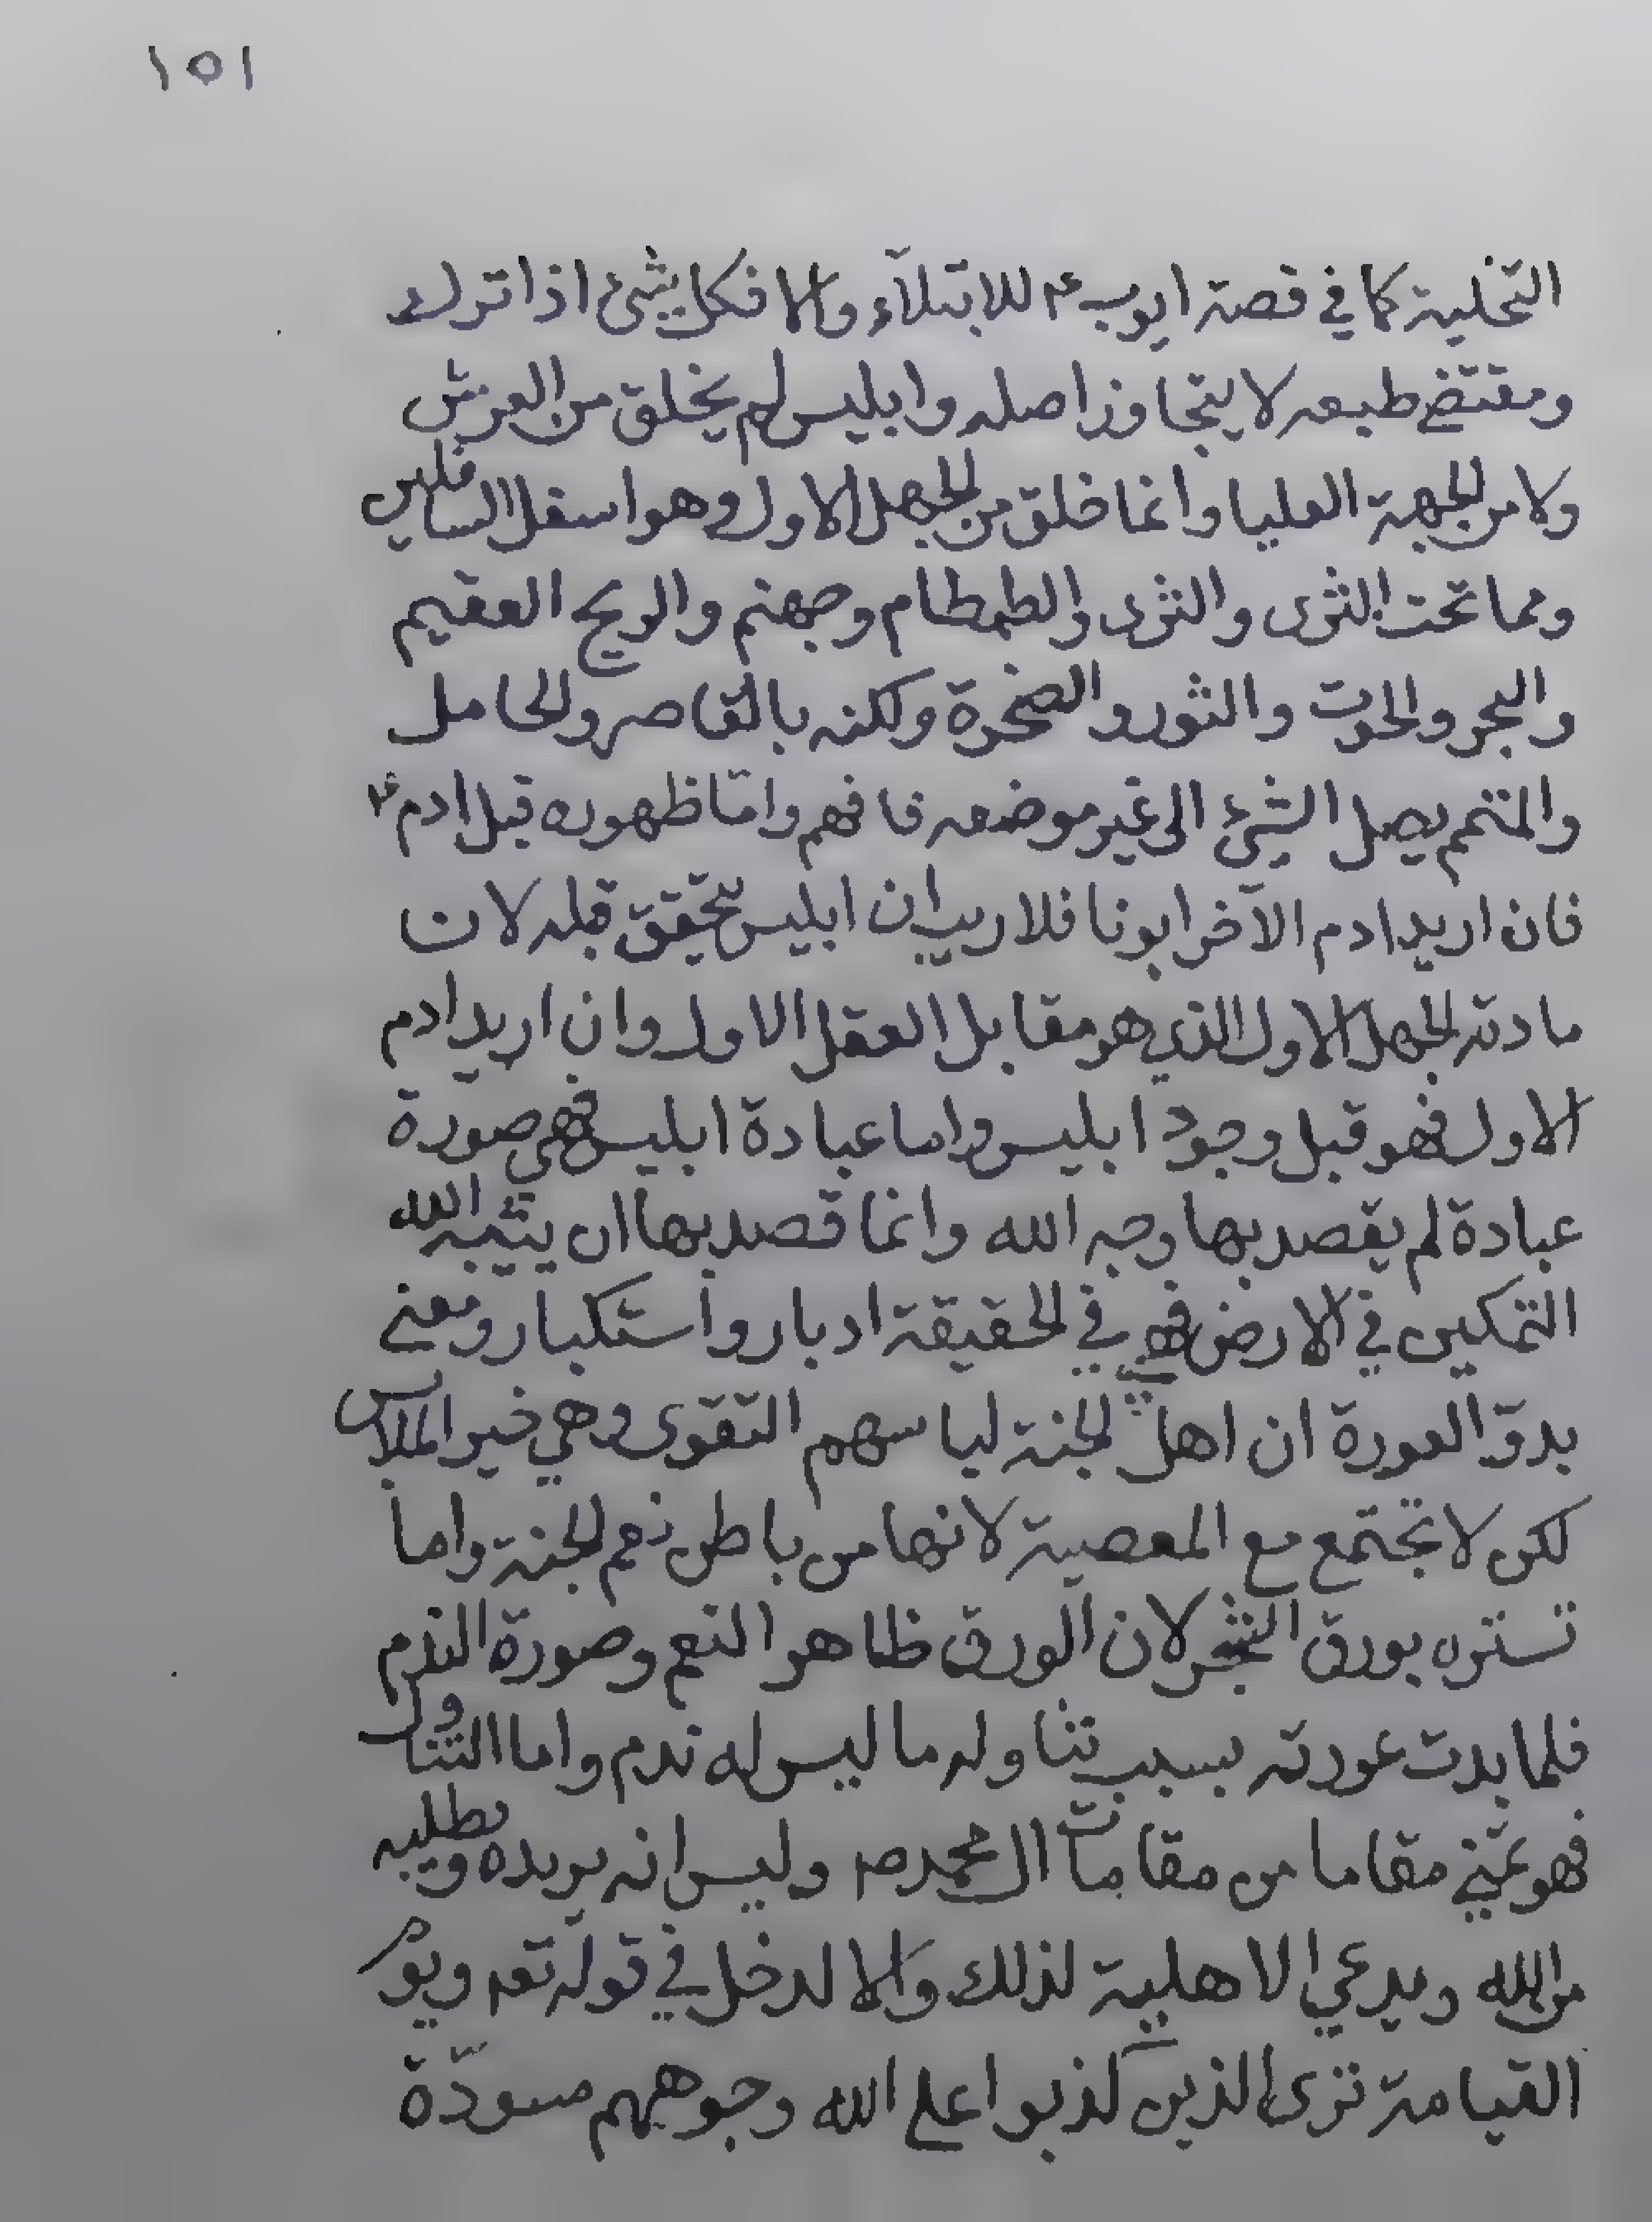 ١٥١
التخلية كما في قصة ايوب ع للابتلآء والا فكل شئ اذا ترك
ومقتضى طبعه لا يتجاوز اصله وابليس لم يخلق من العرش
ولا من الجهة العليا وانما خلق من الجهل الاول وهو اسفل السافلين
ومما تحت الثرى والثرى والطمطام وجهنم والريح العقيم
والبحر والحوت والثور والصخرة ولكنه بالقاصر والحامل
والمتمم يصل الشئ الى غير موضعه فافهم وامّا ظهوره قبل ادم ع
فان اريد ادم الآخر ابونا فلا ريب ان ابليس تحقق قبله لان
مادته الجهل الاول الذي هو مقابل العقل الاول وان اريد ادم
الاول فهو قبل وجود ابليس واما عبادة ابليس فهي صورة
عبادة لم يقصد بها وجه الله وانما قصد بها ان يثيبه الله
التمكين في الارض فهي في الحقيقة ادبار واستكبار ومعنى
بدوّ العورة ان اهل الجنة لباسهم التقوى وهي خير الملابس
لكن لا تجتمع مع المعصية لانها من باطن نعم الجنة واما
تستره بورق الشجر لان الورق ظاهر النعم وصورة الندم
فلما بدت عورته بسبب تناوله ما ليس له ندم واما التناول
فهو تمنّي مقاما من مقامات ال محمد ص وليس انه يريده ويطلبه
من الله ويدعي الاهلية لذلك والا لدخل في قوله تعه ويوم
القيامة ترى الذين كذبوا على الله وجوههم مسودّة